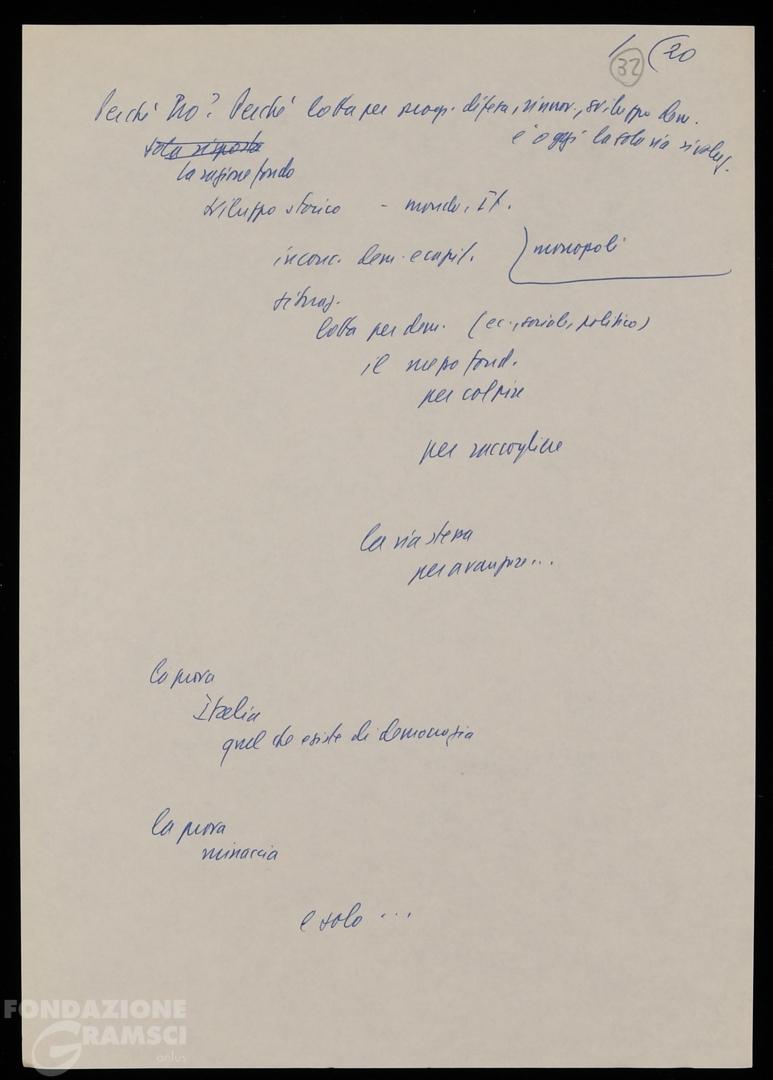 32 (20
Perché? Perché lotta per difesa, rinnov., sviluppo dem.
è oggi la sola via rivoluz.
sola risposta
la ragione fondo
sviluppo storico - mondo, It.
inconc. dem. e capit. monopoli
situaz.
lotta per dem. (ec., sociale, politico)
il mezzo fond.
per colpire
per raccogliere
la via stessa
per avanzare...
la prova
Italia
quel che esiste di democrazia
la prova
minaccia
e solo ...
FONDAZIONE
GRAMSCI
onlus